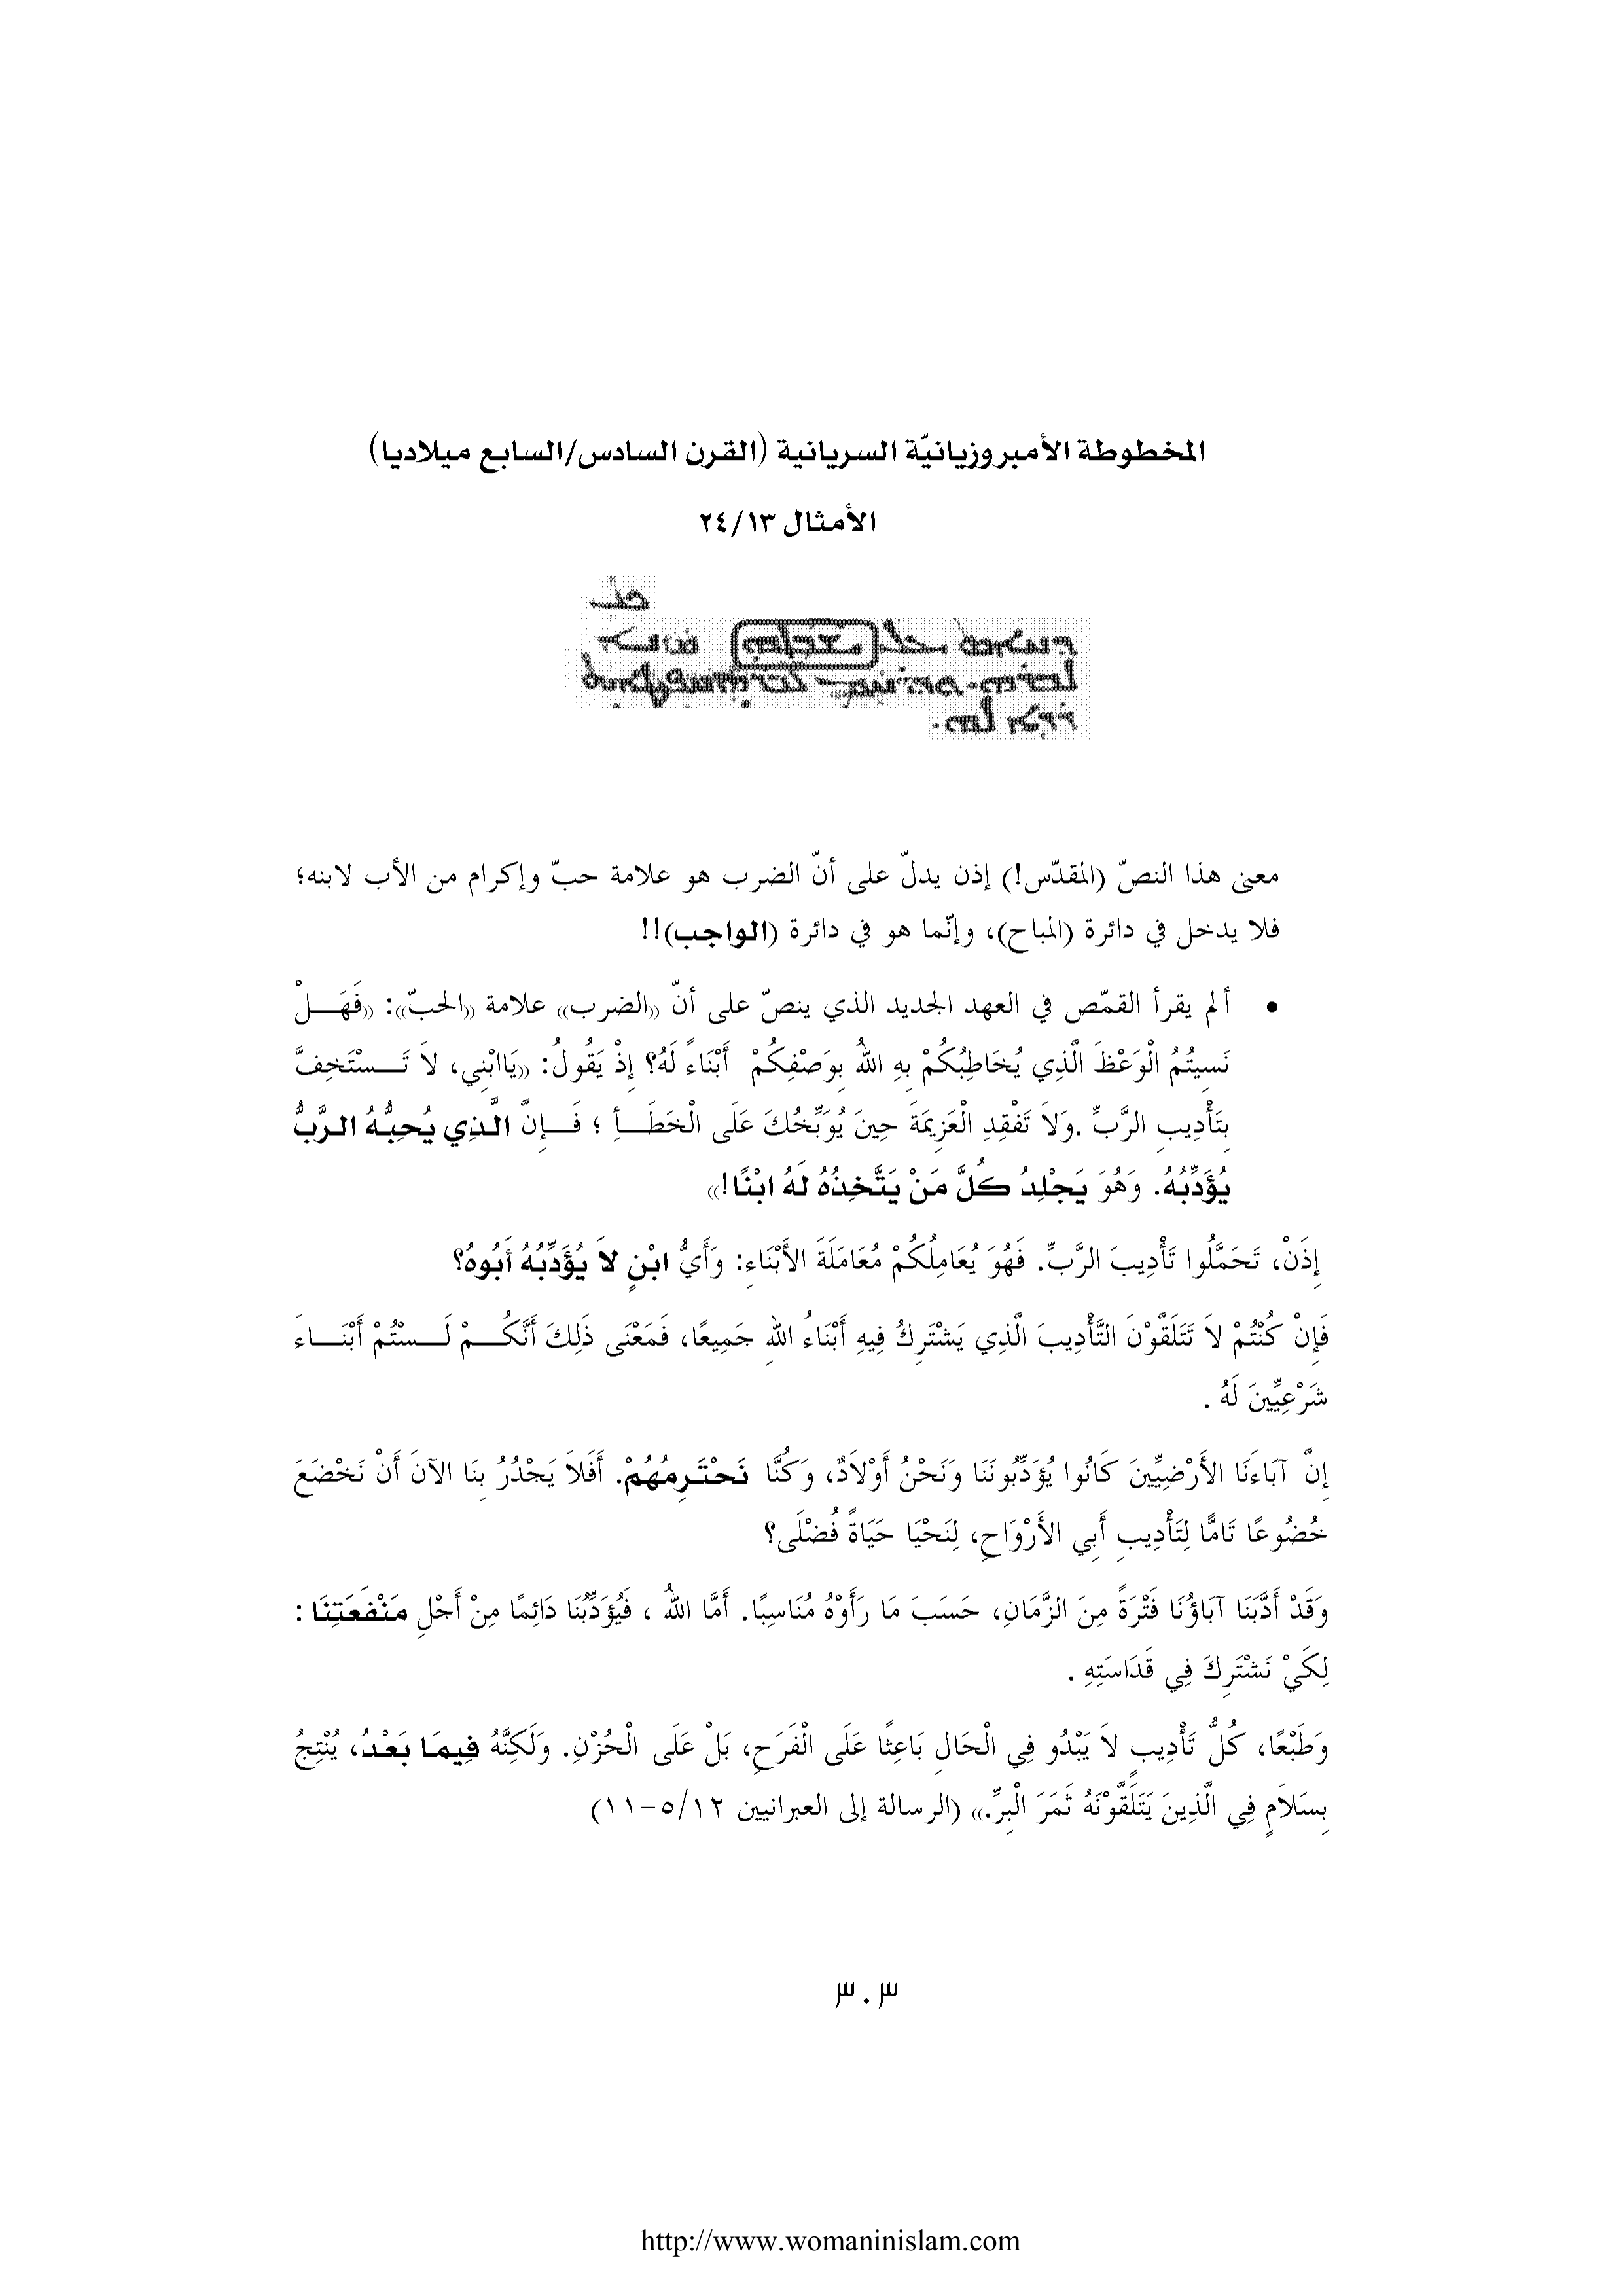 المخطوطة الأمبروزيانيّة السريانية (القرن السادس/السابع ميلاديا)
الأمثال ٢٤/١٣
معنى هذا النصّ (المقدّس!) إذن يدلّ على أنّ الضرب هو علامة حبّ وإكرام من الأب لابنه؛
فلا يدخل في دائرة (المباح)، وإنّما هو في دائرة (الواجب)!!
• ألم يقرأ القمّص في العهد الجديد الذي ينصّ على أنّ «الضرب» علامة «الحبّ»: «فَهَـــلْ
نَسِيتُمُ الْوَعْظَ الَّذِي يُخَاطِبُكُمْ بِهِ اللهُ بِوَصْفِكُمْ أَبْنَاءً لَهُ؟ إِذْ يَقُولُ: «يَاابْنِي، لاَ تَـــسْتَخِفَّ
بِتَأْدِيبِ الرَّبِّ .وَلاَ تَفْقِدِ الْعَزِيمَةَ حِينَ يُوَبِّخُكَ عَلَى الْخَطَـــأِ ؛ فَـــإِنَّ الَّذِي يُحِبُّهُ الرَّبُّ
يُؤَدِّبُهُ. وَهُوَ يَجْلِدُ كُلَّ مَنْ يَتَّخِذُهُ لَهُ ابْنًا!»
إِذَنْ، تَحَمَّلُوا تَأْدِيبَ الرَّبِّ. فَهُوَ يُعَامِلُكُمْ مُعَامَلَةَ الأَبْنَاءِ: وَأَيُّ ابْنٍ لاَ يُؤَدِّبُهُ أَبُوهُ؟
فَإِنْ كُنْتُمْ لاَ تَتَلَقَّوْنَ التَّأْدِيبَ الَّذِي يَشْتَرِكُ فِيهِ أَبْنَاءُ اللهِ جَمِيعًا، فَمَعْنَى ذَلِكَ أَنَّكُـــمْ لَـــسْتُمْ أَبْنَـــاءَ
شَرْعِيِّينَ لَهُ .
إِنَّ آبَاءَنَا الأَرْضِيِّينَ كَانُوا يُؤَدِّبُونَنَا وَنَحْنُ أَوْلاَدٌ، وَكُنَّا نَحْتَرِمُهُمْ. أَفَلاَ يَجْدُرُ بِنَا الآنَ أَنْ نَخْضَعَ
خُضُوعًا تَامًّا لِتَأْدِيبِ أَبِي الأَرْوَاحِ، لِنَحْيَا حَيَاةً فُضْلَى؟
وَقَدْ أَدَّبَنَا آبَاؤُنَا فَتْرَةً مِنَ الزَّمَانِ، حَسَبَ مَا رَأَوْهُ مُنَاسِبًا. أَمَّا اللهُ ، فَيُؤَدِّبُنَا دَائِمًا مِنْ أَجْلِ مَنْفَعَتِنَا :
لِكَيْ نَشْتَرِكَ فِي قَدَاسَتِهِ .
وَطَبْعًا، كُلُّ تَأْدِيبٍ لاَ يَبْدُو فِي الْحَالِ بَاعِثًا عَلَى الْفَرَحِ، بَلْ عَلَى الْحُزْنِ. وَلَكِنَّهُ فِيمَا بَعْدُ، يُنْتِجُ
بِسَلاَمٍ فِي الَّذِينَ يَتَلَقَّوْنَهُ ثَمَرَ الْبِرِّ.» (الرسالة إلى العبرانيين ١٢/٥-١١)
٣٠٣
http://www.womaninislam.com